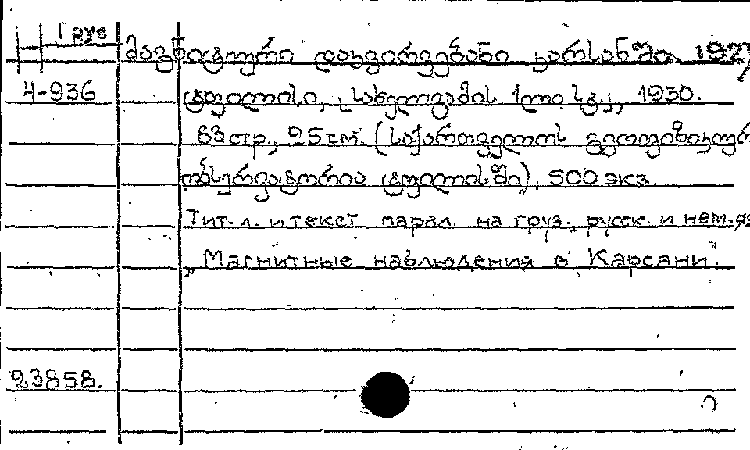 Груз
მაგნიტური დაკვირვებანი კარსანში. 1927
4-936
ტფილისი, სახელგამის 1ლი სტ., 1930.
68 стр., 25 см. (საქართველოს გეოფიზიკურ
ობსერვატორია ტფილისში), 500 экз.
Тит. л. и текст парал. на груз., русск. и нем. яз
„Магнитные наблюдения в Карсани".
23858.